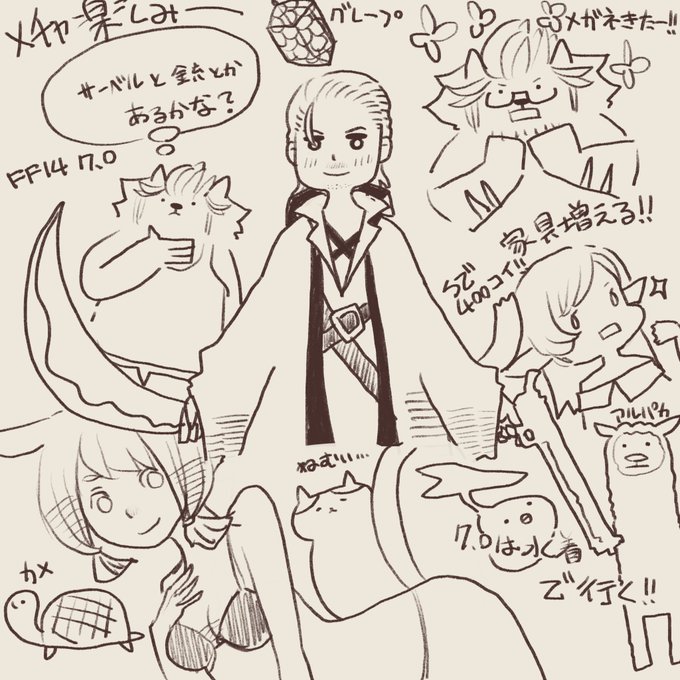 メチャ楽しみー
グレープ
メガネきたー!!
サーベルと銃とか
あるかな?
FF14 7.0
家具増える!!
らで
400コイ!!
アルパカ
ねむい…
7.0は水着
で行く!!
カメ